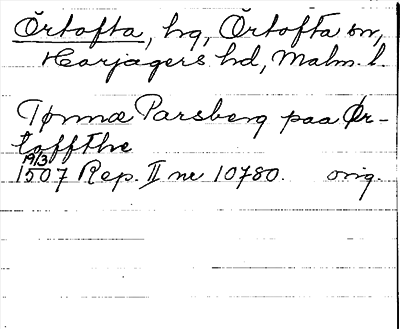 Örtofta, hg, Örtofta sn,
Harjagers hd, Malm. l.
Tønnæ Parsberg paa Ør-
toffthe
19/3
1507 Rep. II nr 10780. orig.